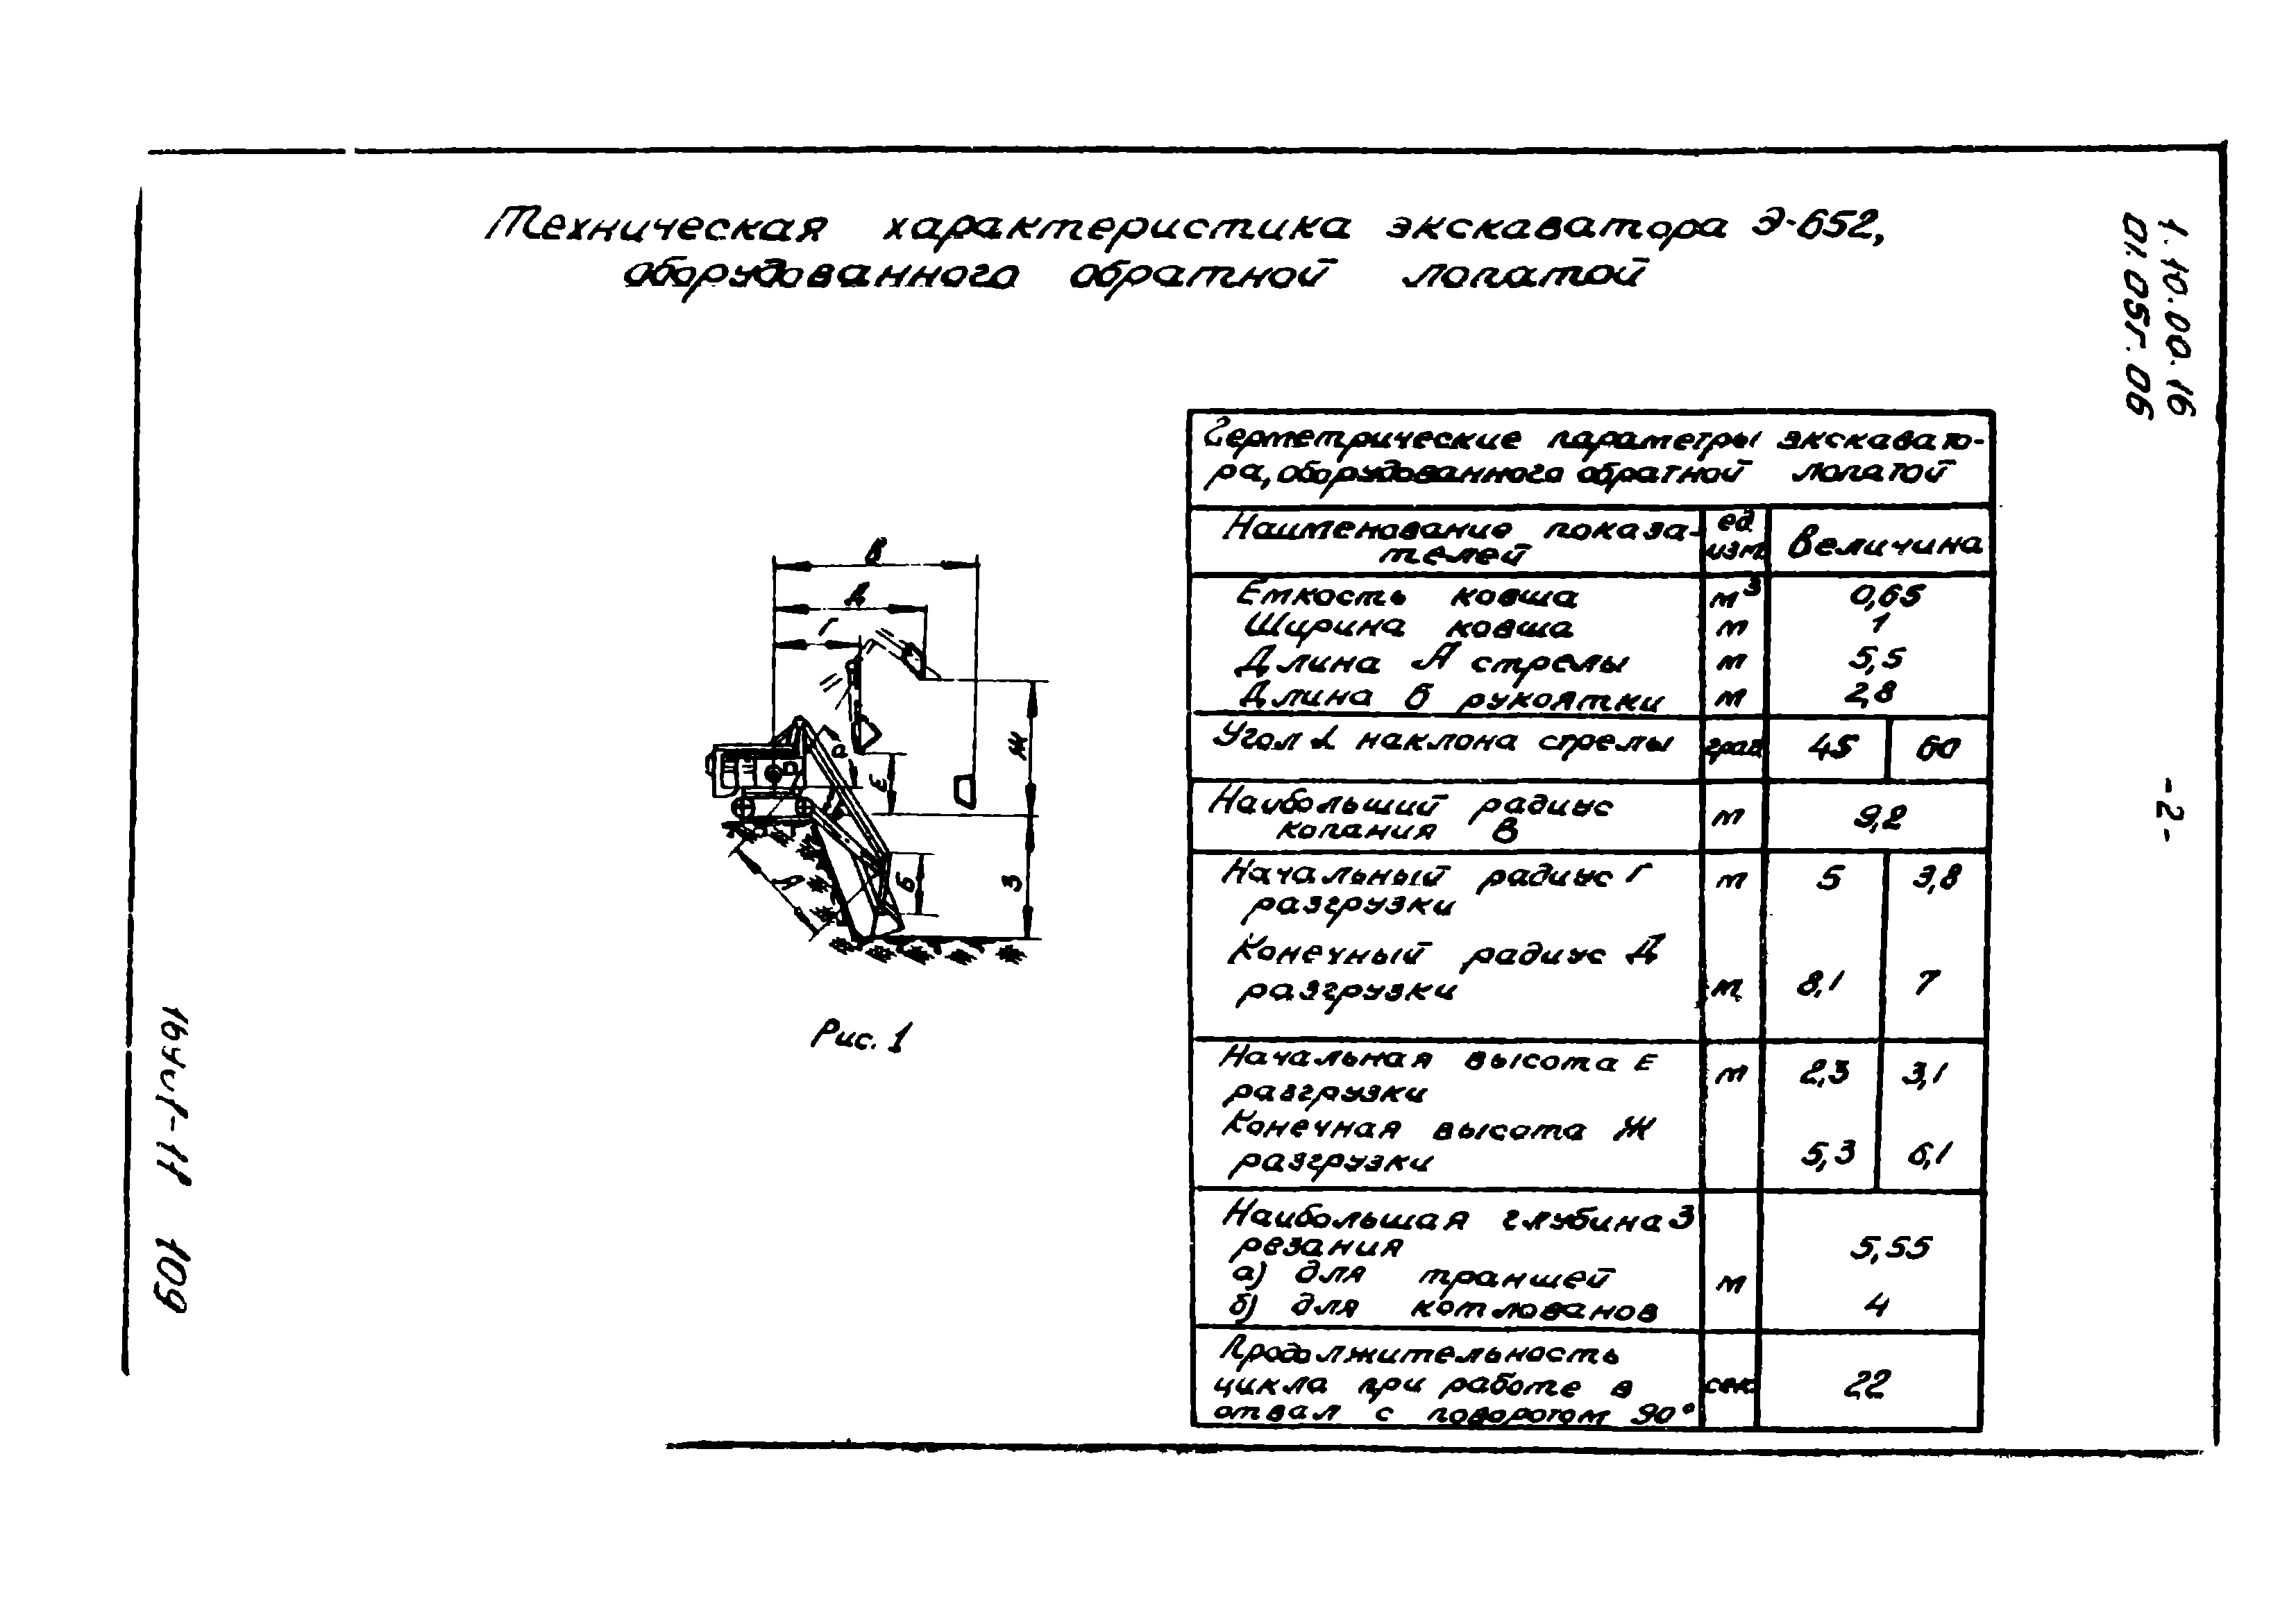 Техническая характеристика экскаватора Э-652,
оборудованного обратной лопатой
1.10.00.16
01.05г.06
-2-
109
В
Д
Г
а
Е
Ж
А
Б
З
Рис. 1
Геометрические параметры экскавато-
ра, оборудованного обратной лопатой
Наименование показа-
телей
ед
изм
Величина
Емкость ковша м³ 0,65
Ширина ковша м 1
Длина А стрелы м 5,5
Длина б рукоятки м 2,8
Угол α наклона стрелы град 45 60
Наибольший радиус
копания В м 9,2
Начальный радиус Г м 5 3,8
разгрузки
Конечный радиус Д
разгрузки м 8,1 7
Начальная высота Е м 2,3 3,1
разгрузки
Конечная высота Ж
разгрузки 5,3 6,1
Наибольшая глубина З
резания 5,55
а) для траншей м
б) для котлованов 4
Продолжительность
цикла при работе в сек 22
отвал с поворотом 90°